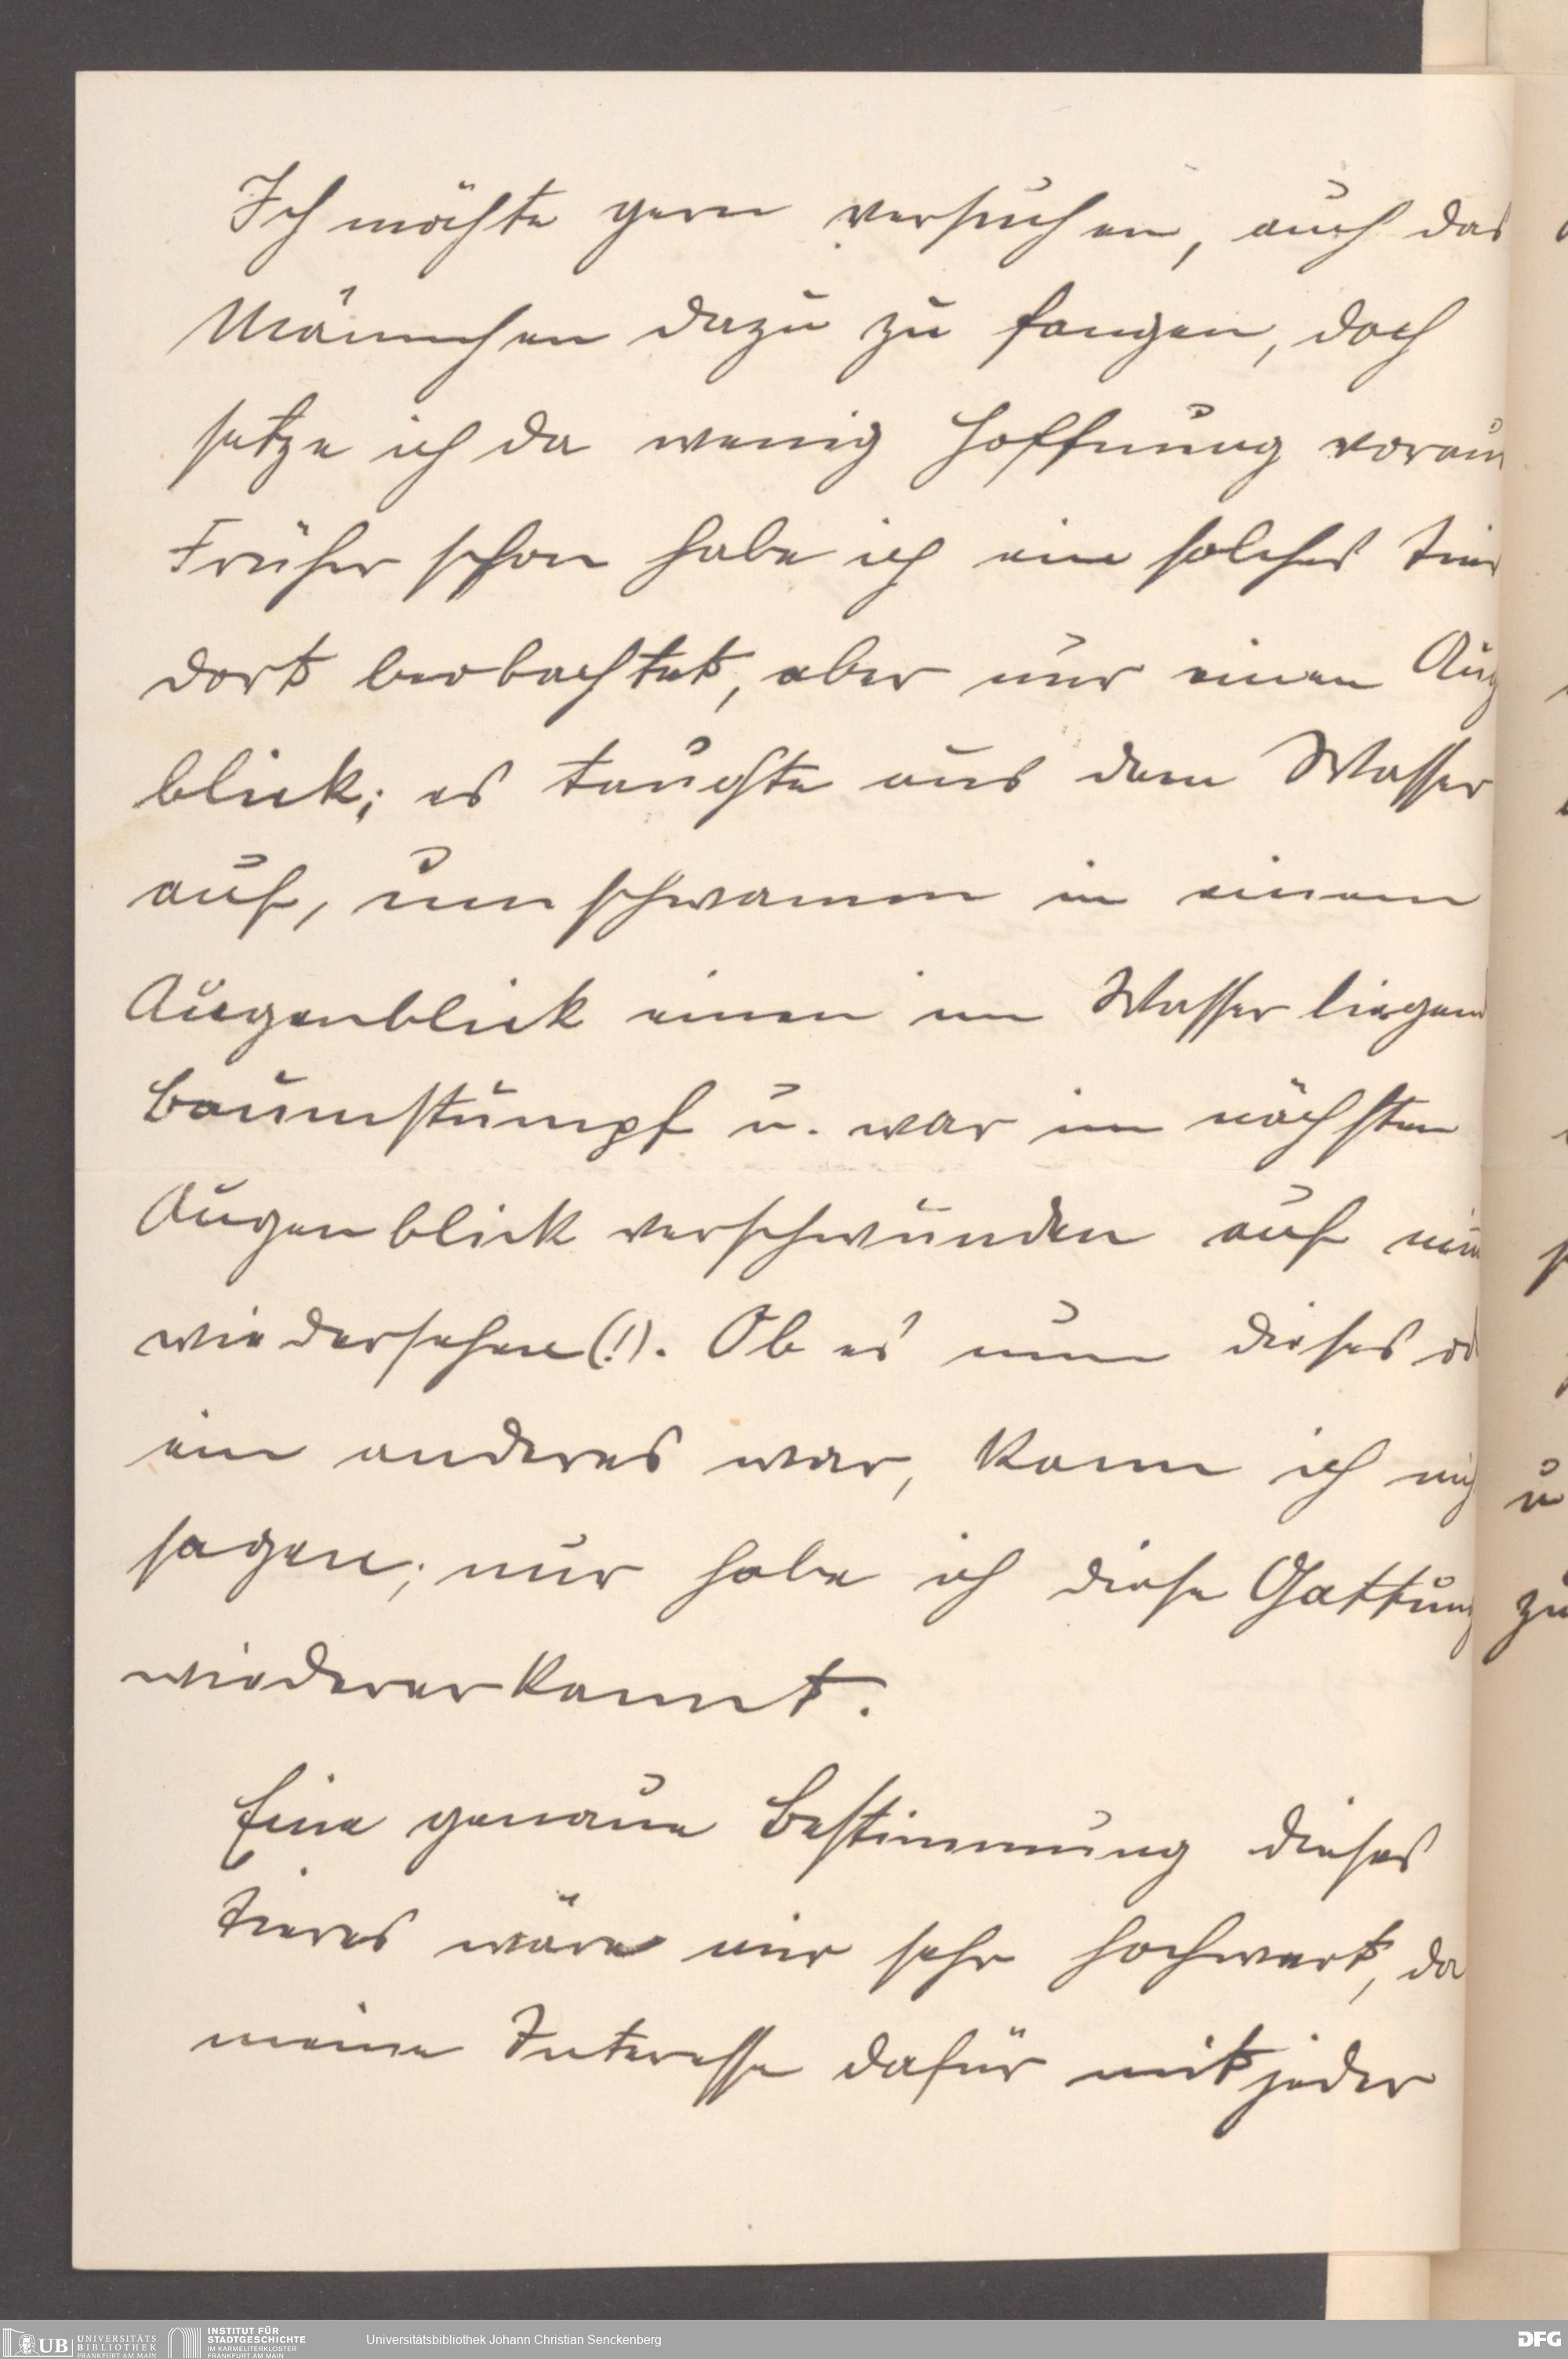 Ich möchte gern versuchen, auch das
Männchen dazu zu fangen, doch
setze ich da wenig Hoffnung voraus
Früher schon habe ich ein solches Tier
dort beobachtet, aber nur einen Aug
blick; es tauchte aus dem Wasser
auf, umschwamm in einem
Augenblick einen im Wasser liegend
Baumstumpf u. war im nächsten
Augenblick verschwunden auf nim
wiedersehen(!). Ob es nun dieses od
ein anderes war, kann ich nich
sagen; nur habe ich diese Gattung
wiedererkannt.
Eine genaue Bestimmung dieses
Tieres wäre mir sehr hochwert, da
meine Interesse dafür mit jeder
u
zu
UB UNIVERSITÄTS
BIBLIOTHEK
FRANKFURT AM MAIN
INSTITUT FÜR
STADTGESCHICHTE
IM KARMELITERKLOSTER
FRANKFURT AM MAIN
Universitätsbibliothek Johann Christian Senckenberg
DFG